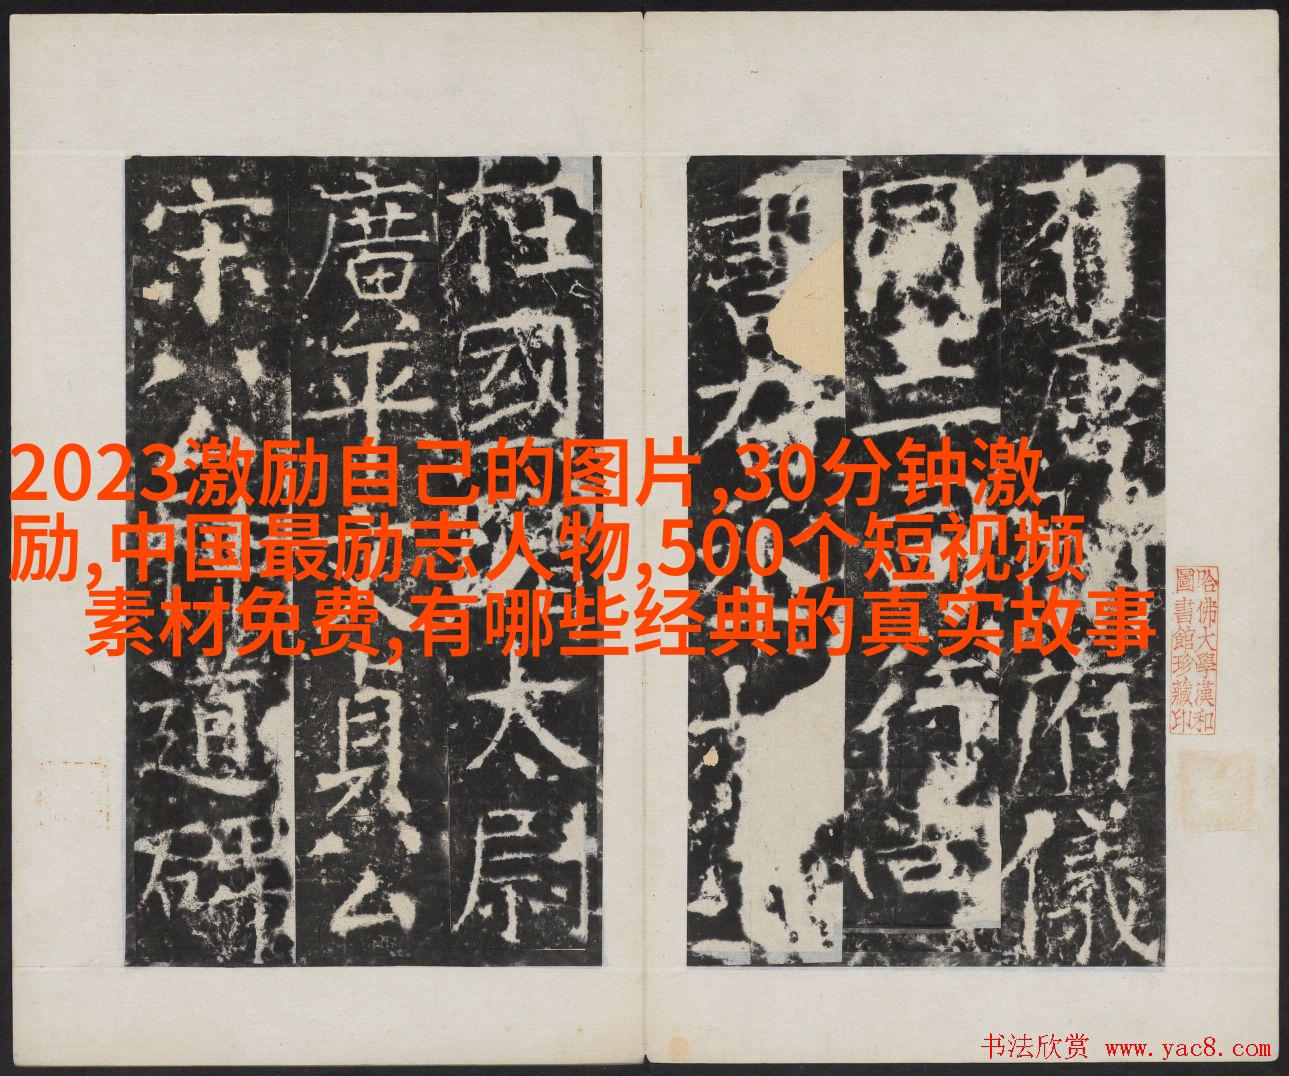 2023激励自己的图片,30分钟激
励,中国最励志人物,500个短视频
素材免费,有哪些经典的真实故事
有唐開府儀
同三司行尚
書右丞相上
柱國贈太尉
廣平文貞公
宋公神道碑
哈佛大學漢和
圖書館珍藏印
书法欣赏 www.yac8.com